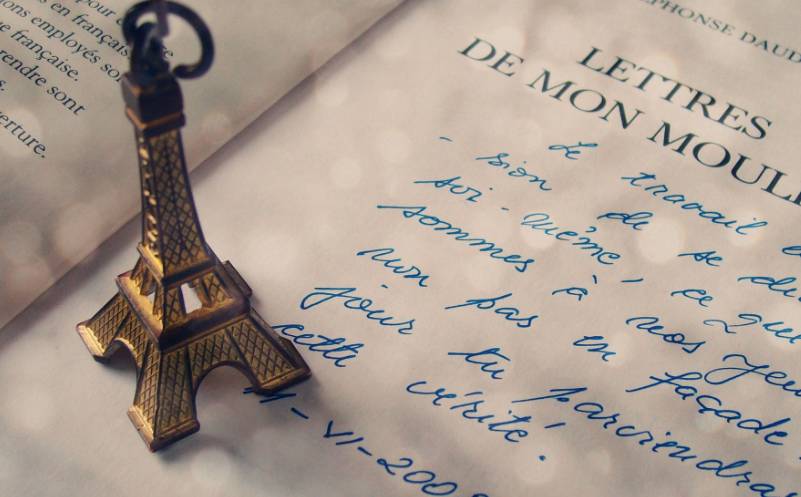 pour
s en français
ions employés so
e française.
rendre sont
s.
verture.
PHONSE DAUD
LETTRES
DE MON MOULI
Le travail
- sion de se du
soi-même, ce que
sommes à nos yeu
non pas en façade
jour tu parviendra
cette vérité.
11-VI-200